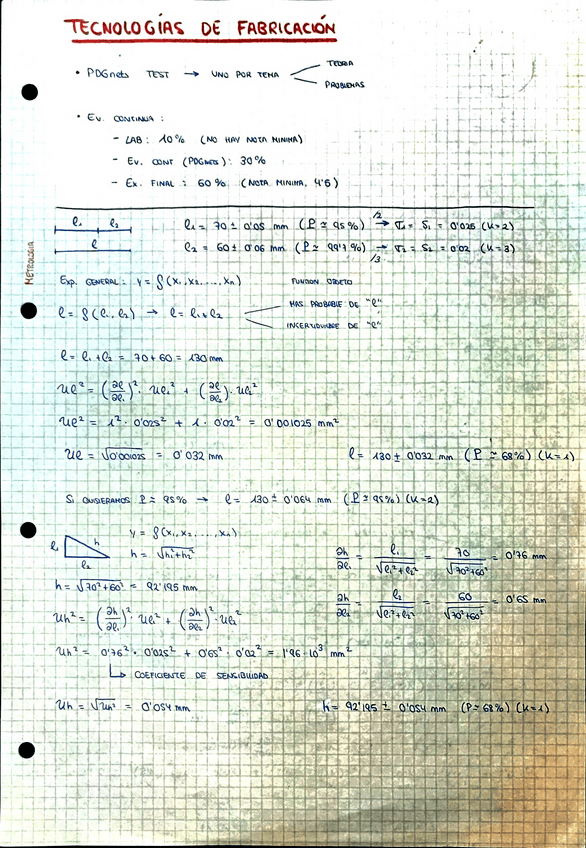 TECNOLOGÍAS DE FABRICACIÓN
• PDGnets TEST → UNO POR TEMA
TEORIA
PROBLEMAS
• EV. CONTINUA :
- LAB : 10% (NO HAY NOTA MINIMA)
- EV. CONT (PDGnets) : 30%
- EX. FINAL : 60% (NOTA MINIMA, 4'5)
METROLOGIA
l₁ l₂
l
l₁ = 70 ± 0'05 mm (P ≅ 95%) →/2 σ₁ = S₁ = 0'025 (K=2)
l₂ = 60 ± 0'06 mm (P ≅ 99'7%) →/3 σ₂ = S₂ = 0'02 (K=3)
EXP. GENERAL : y = f(x₁, x₂, ..., xₙ) FUNCION OBJETO
l = f(l₁, l₂) → l = l₁ + l₂
MAS PROBABLE DE "l"
INCERTIDUMBRE DE "l"
l = l₁ + l₂ = 70 + 60 = 130 mm
Ul² = (∂l/∂l₁)² · Ul₁² + (∂l/∂l₂) · Ul₂²
Ul² = 1² · 0'025² + 1 · 0'02² = 0'001025 mm²
Ul = √0'001025 = 0'032 mm l = 130 ± 0'032 mm (P ≅ 68%) (K=1)
SI QUISIERAMOS P ≅ 95% → l = 130 ± 0'064 mm (P ≅ 95%) (K=2)
l₁ h l₂
y = f(x₁, x₂, ..., xₙ)
h = √h₁² + h₂²
∂h/∂l₁ = l₁/√l₁² + l₂² = 70/√70² + 60² = 0'76 mm
h = √70² + 60² = 92'195 mm
∂h/∂l₂ = l₂/√l₁² + l₂² = 60/√70² + 60² = 0'65 mm
Uh² = (∂h/∂l₁)² · Ul₁² + (∂h/∂l₂)² · Ul₂²
Uh² = 0'76² · 0'025² + 0'65² · 0'02² = 1'96 · 10³ mm²
↳ COEFICIENTE DE SENSIBILIDAD
Uh = √Uh² = 0'054 mm h = 92'195 ± 0'054 mm (P ≅ 68%) (K=1)